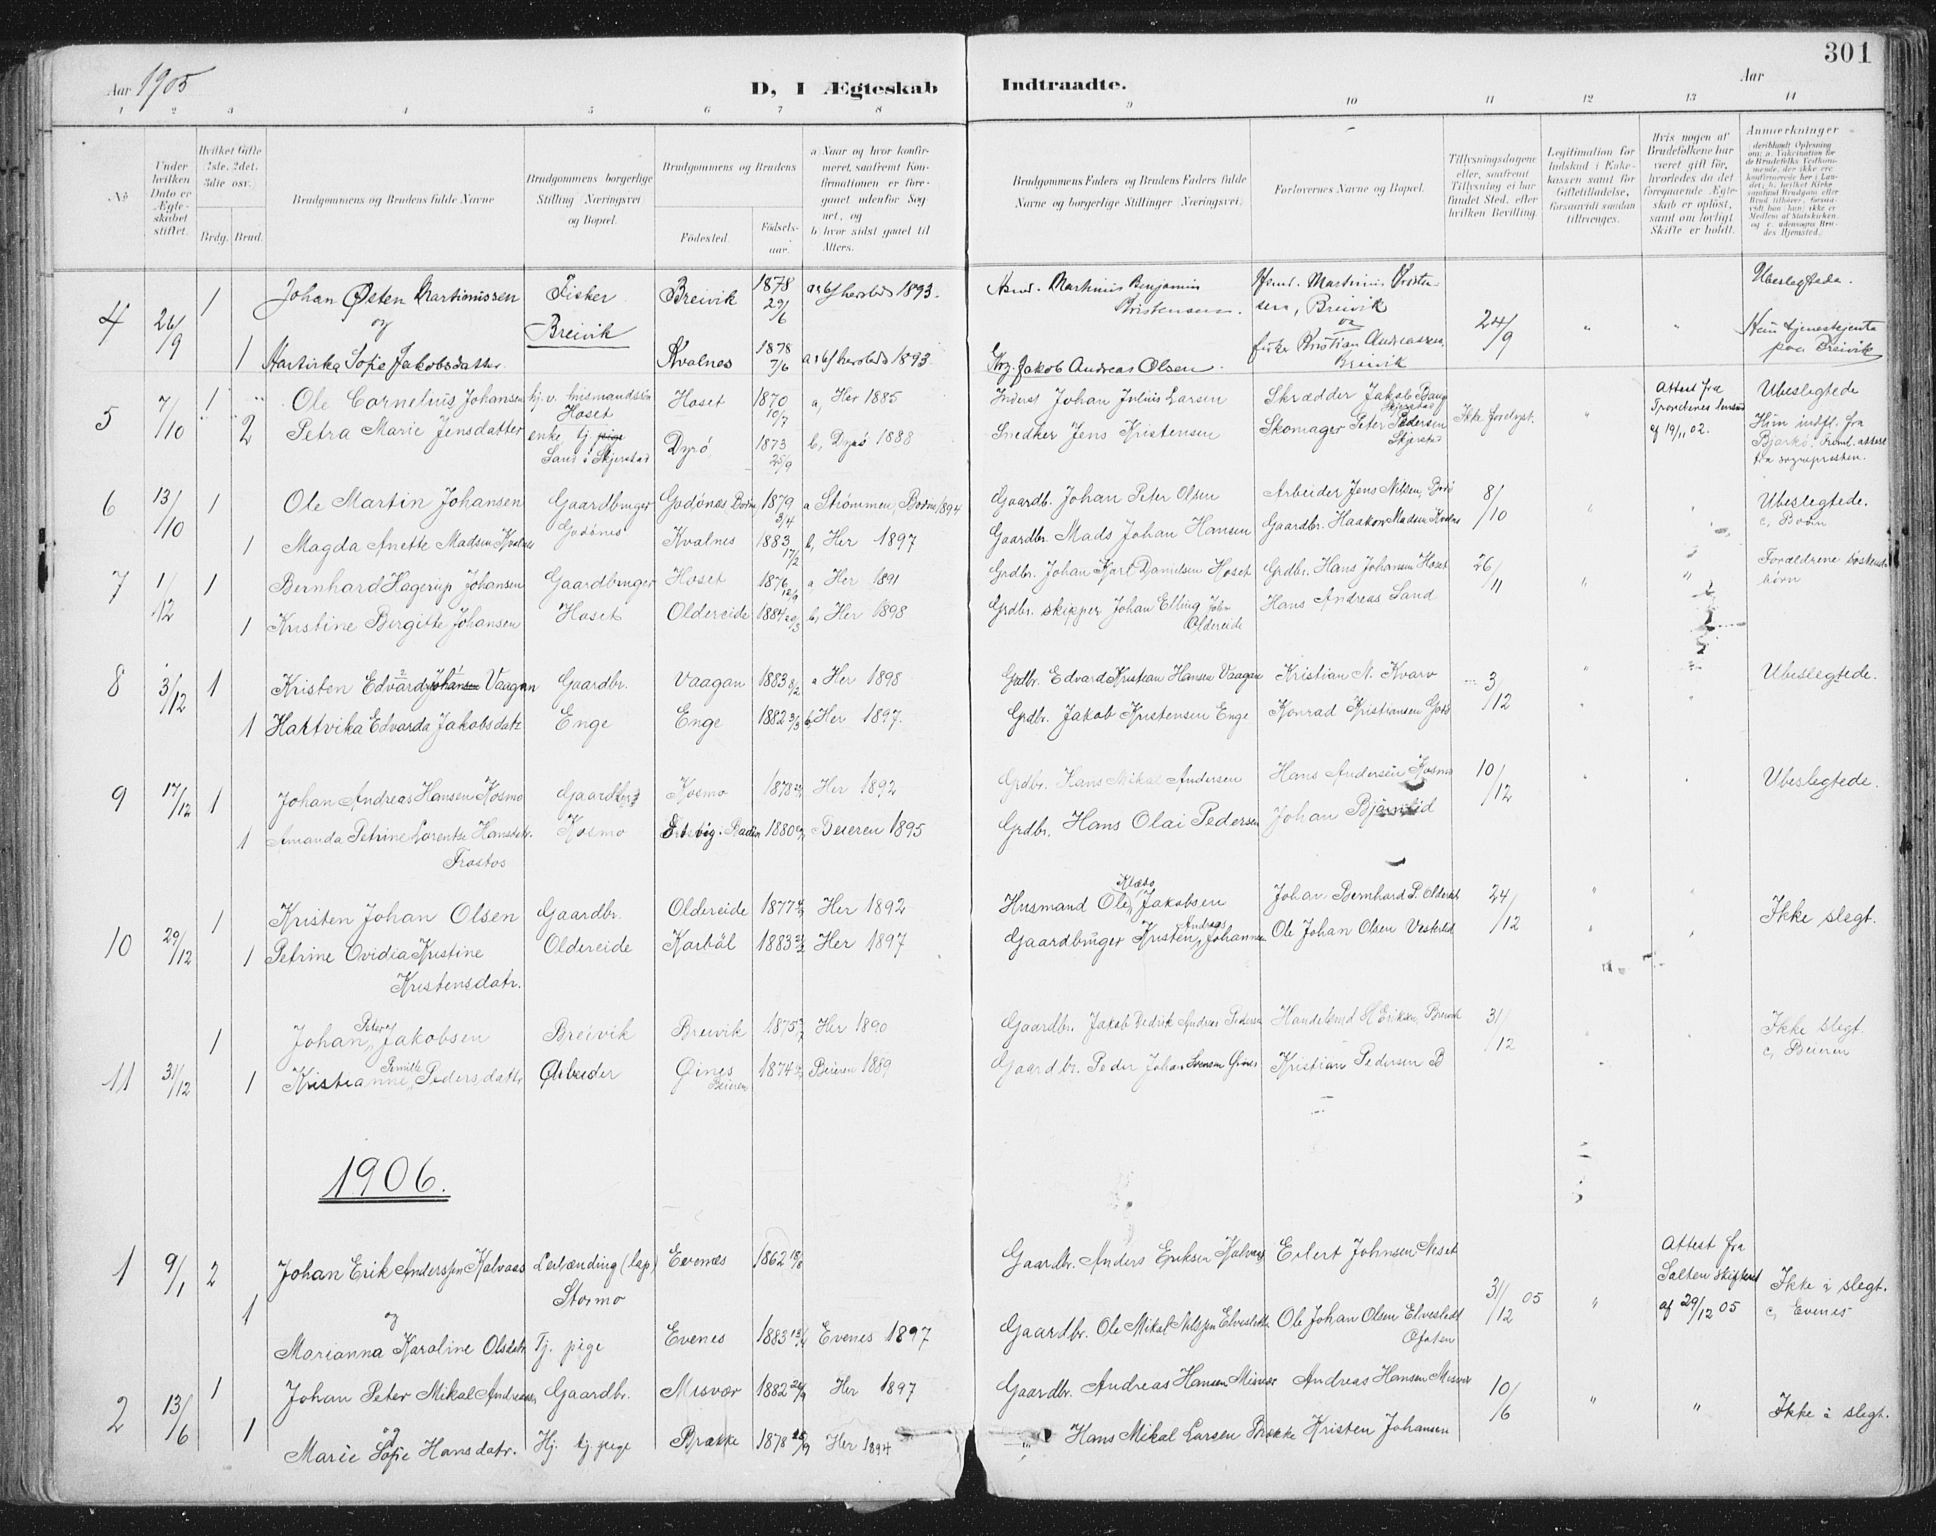 301
Aar 1905
D, I Ægteskab Indtraadte.
Aar
1 2 3 4 5 6 7 8 9 10 11 12 13 14
No
Under hvilken Dato er Ægteskabet stiftet.
Hvilket Gifte 1ste, 2det, 3die osv.
Brdg. Brud.
Brudgommens og Brudens fulde Navne
Brudgommens borgerlige Stilling Næringsvei og Bopæl.
Brudgommens og Brudens
Fødested.
Fødselsaar.
a Naar og hvor konfirmeret, saafremt Konfirmationen er foregaaet udenfor Sognet, og
b hvor sidst gaaet til Alters.
Brudgommens Faders og Brudens Faders fulde Navne og borgerlige Stillinger Næringsvei.
Forlovernes Navne og Bopæl.
Tillysningsdagene eller, saafremt Tillysning ei har fundet Sted, efter hvilken Bevilling.
Legitimation for Indskud i Enkekassen samt for Giftetilladelse, forsaavidt saadan tiltrænges.
Hvis nogen af Brudefolkene har været gift før, hvorledes da det foregaaende Ægteskab er opløst, samt om lovligt Skifte er holdt.
Anmerkninger
4 26/9 1 Johan Østen Martinussen Fisker Breivik 1878 29/6 1893. Martinus Benjamin Kristensen. Martinus Kristensen, Breivik 24/9 " " Ubeslegtede.
og Breivik og
1 Hartvika Sofie Jakobsdatter Kvalnes 1878 7/6 1893 Jakob Andreas Olsen. fisker Kristian Andreassen Breivik Hun tjenestejente paa Breivik
5 7/10 1 " Ole Cornelius Johansen hj. v. husmandssøn Hoset Hoset 1870 10/7 a, Her 1885 Inderst Johan Julius Larsen Skrædder Jakob Skjerstad Ikke forelyst. " Attest fra Trondenes lensmd af 19/11 02. Ubeslegtede
" 2 Petra Marie Jensdatter enke tj. pige Sand i Skjerstad Dyrø 1873 25/9 b, Dyrø 1888 Snedker Jens Kristensen Skomager Peter Pedersen Skjerstad Hun indfl. fra Bjarkø. Freml. attest fra sognepresten.
6 13/10 1 Ole Martin Johansen Gaardbruger Godønes Bodin 1879 3/4 a Strømmen, Bodin 1894 Gaardb. Johan Peter Olsen Arbeider Jens Nilsen, Bodø 8/10 " " Ubeslegtede. c, Bodin
1 Magda Anette Madsen Kvalnes Godønes Kvalnes 1883 17/2 b, Her 1897 Gaardbr. Mads Johan Hansen Gaardbr. Haakon Madsen Kvalnes
7 1/12 1 Bernhard Hagerup Johansen Gaardbruger Hoset 1876 12/9 a Her 1891 Grdbr. Johan Karl Danielsen Hoset Grdbr. Hans Johansen Hoset 26/11 " " Forældrene søskendebørn
1 Kristine Birgitte Johansen Hoset Oldereide 1884 20/3 b, Her 1898 Grdbr. skipper Johan Elling Johns Oldereide Hans Andreas Sand
8 3/12 1 Kristen Edvard Johansen Vaagan Gaardbr. Vaagan 1883 8/2 a Her 1898 Grdbr. Edvard Kristian Hansen Vaagan Kristian N. Kvarv 3/12 " " Ubeslegtede.
1 Hartvika Edvarda Jakobsdatr Enge Enge 1882 3/3 b, Her 1897. Grdbr. Jakob Kristensen Enge Konrad Kristiansen
9 17/12 1 Johan Andreas Hansen Kosmo Gaardbr. Kosmo 1878 Her 1892 Grdbr. Hans Mikal Andersen Hans Andersen Kosmo 10/12 " " Ubeslegtede.
1 Amanda Petrine Lorentse Hansdtr. Kosmo 1880 Beieren 1895 Grdbr. Hans Olai Pedersen Johan Bjørnlid
10 29/12 1 Kristen Johan Olsen Gaardbr. Oldereide 1877 Her 1892 Husmand Ole Klæbo Jakobsen Johan Bernhard P. Oldereid 24/12 " " Ikke slegt.
1 Petrine Ovidia Kristine Kristensdatr. Oldereide Karbøl 1883 Her 1897 Gaardbruger Kristen Andreas Johannsen Ole Johan Olsen Vesterlid
11 31/12 1 Johan Peter Jakobsen Breivik Breivik 1875 Her 1890 Gaardbr. Jakob Bedrik Andreas Pedersen Handelsmd H Eriksen, Breivik 31/12 Ikke slegt. c, Beieren
1 Kristianne Pernille Pedersdatr Arbeider Øines Beieren 1874 Beieren 1889 Gaardbr. Peder Johan Svensen Øines Kristian Pedersen B
1906.
1 9/1 2 Johan Erik Anderssen Kalvaas Leilænding (lap) Stormo Evenæs 1862 18/8 Gaardbr. Anders Eriksen Kalvaas Eilert Johnsen Neset 31/12 05 " Attest fra Salten skifteret af 29/12 05 Ikke i slegt. c, Evenes
og
1 Marianna Karoline Olsdatr. Tj. pige Evenes 1883 Evenes 1897 Gaardbr. Ole Mikal Nilssen Elvesletta Ole Johan Olsen Elvesletta Ofoten
2 13/6 1 Johan Peter Mikal Andreass. Gaardbr. Misvær 1882 Her 1897 Gaardbr. Andreas Hansen Misvær Andreas Hansen Misvær 10/6 " " Ikke i slegt.
og
1 Marie Sofie Hansdatr. Hj. tj. pige Brække 1878 25/9 Her 1894 " Hans Mikal Larsen Brække Kristen Johansen